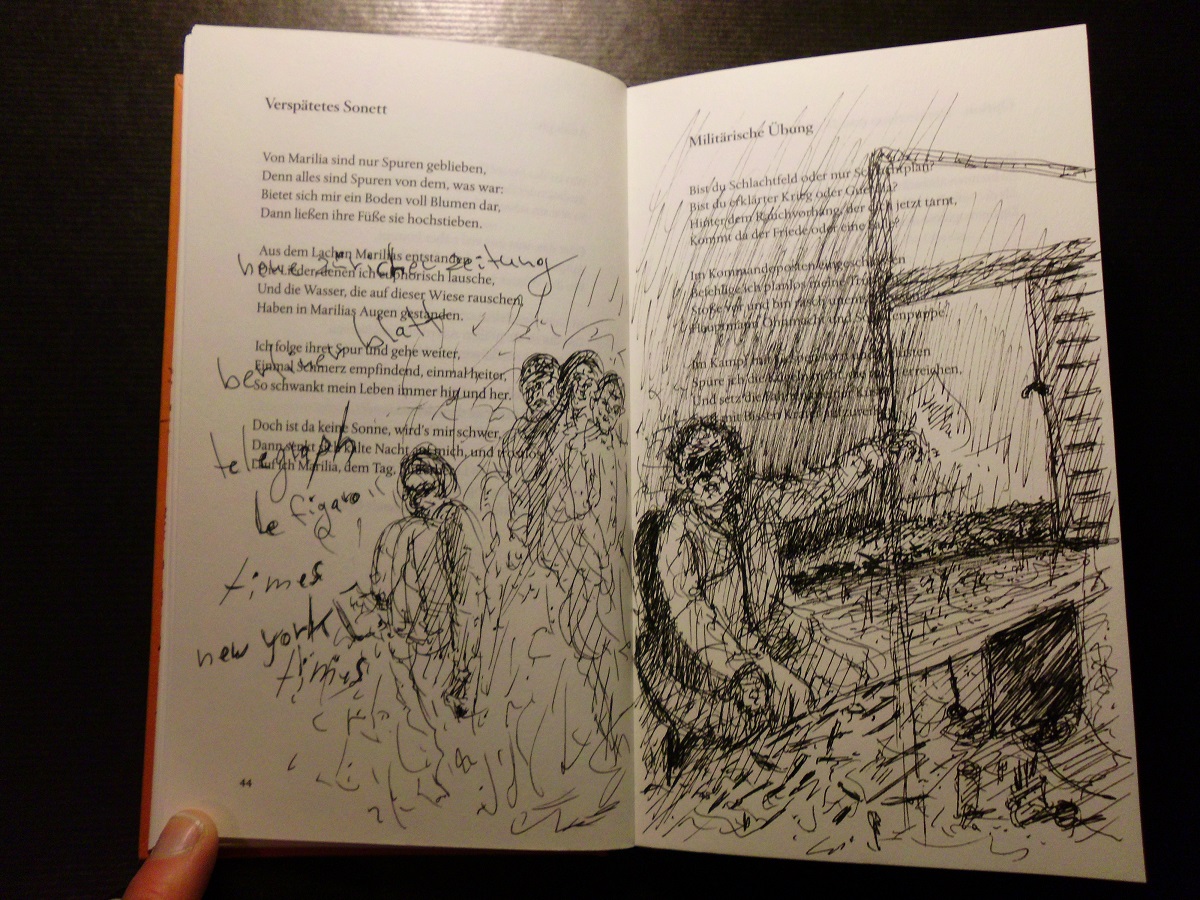 Verspätetes Sonett
Von Marilia sind nur Spuren geblieben,
Denn alles sind Spuren von dem, was war:
Bietet sich mir ein Boden voll Blumen dar,
Dann ließen ihre Füße sie hochstieben.
Aus dem Lachen Marilias entstanden
Lieder, denen ich euphorisch lausche,
Und die Wasser, die auf dieser Wiese rauschen,
Haben in Marilias Augen gestanden.
Ich folge ihrer Spur und gehe weiter,
Einmal Schmerz empfindend, einmal heiter,
So schwankt mein Leben immer hin und her.
Doch ist da keine Sonne, wird's mir schwer,
Dann senkt kalte Nacht auf mich, und
ich Marilia, dem Tag,
neue zürcher zeitung
berliner blatt
telegraph
le figaro
times
new york
times
44
Militärische Übung
Bist du Schlachtfeld oder nur Schlachtplan?
Bist du erklärter Krieg oder Guerilla?
Hinter dem Rauchvorhang, der dich jetzt tarnt,
Kommt da der Friede oder eine
Im Kommandoposten eingeschlossen
Befehlige ich planlos meine
Stoße vor und bin rasch
Hauptmann Ohnmacht und
Im Kampf
Spüre ich die erreichen,
Und setz die
mit